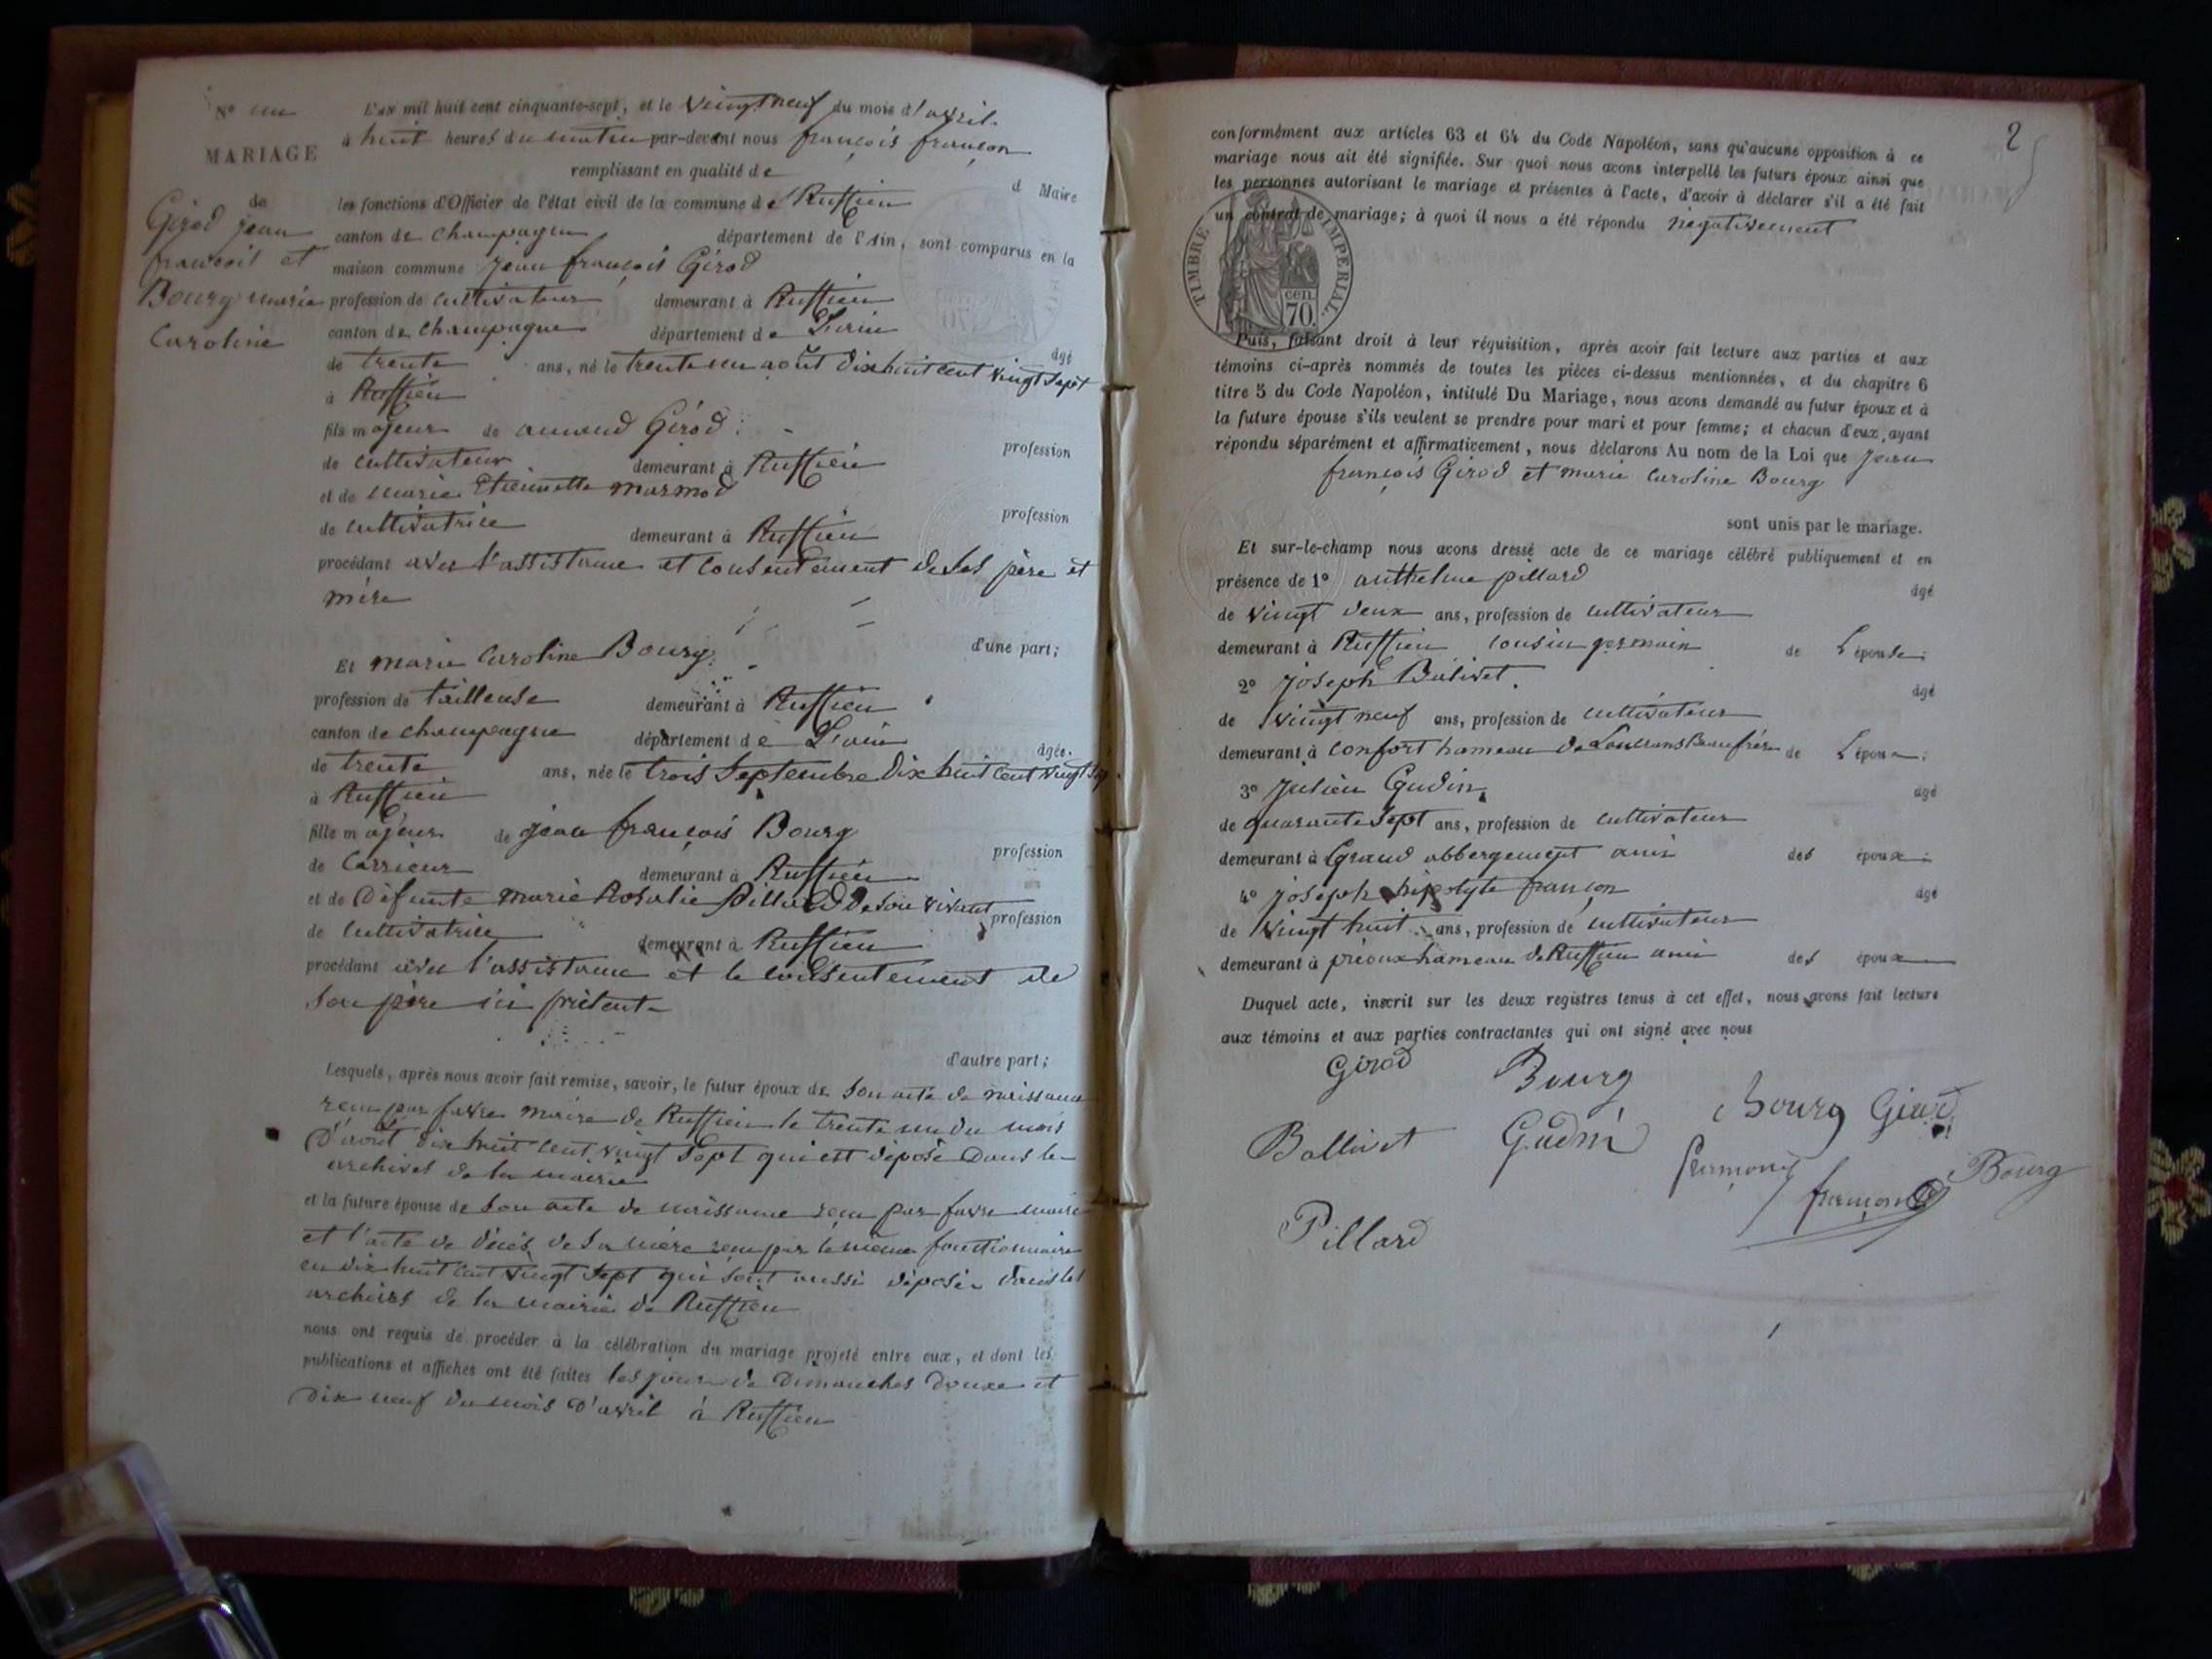 N° un
MARIAGE
de
Girod jean
francois et
Bourg marie
Caroline
L'an mil huit cent cinquante-sept, et le vingt neuf du mois d'avril
à huit heures du matin par-devant nous françois françon
remplissant en qualité de
d Maire
les fonctions d'Officier de l'état civil de la commune de Ruffieu
canton de champagne département de l'Ain, sont comparus en la
maison commune jean françois Girod
profession de cultivateur demeurant à Ruffieu
canton de champagne département de L'ain
âgé
de trente ans, né le trente un août dix huit cent vingt sept
à Ruffieu
fils majeur de armand Girod
profession
de cultivateur demeurant à Ruffieu
et de marie Etiennette marmod
profession
de cultivatrice demeurant à Ruffieu
procédant avec l'assistance et consentement de ses père et
mère
d'une part;
Et marie caroline Bourg
profession de tailleuse demeurant à Ruffieu
canton de champagne département de L'ain
âgée
de trente ans, née le trois septembre dix huit cent vingt sept
à Ruffieu
fille majeur de jean françois Bourg
profession
de Carrieur demeurant à Ruffieu
et de Défunte marie Rosalie pillard de son vivant
profession
de cultivatrice demeurant à Ruffieu
procédant avec l'assistance et le consentement de
son père ici présent
d'autre part;
Lesquels, après nous avoir fait remise, savoir, le futur époux de son acte de naissance
reçu par favre maire de Ruffieu le trente un du mois
d'août dix huit cent vingt sept qui est déposé dans les
archives de la mairie
et la future épouse de son acte de naissance reçu par favre maire
et l'acte de décès de sa mère reçu par le même fonctionnaire
en dix huit cent vingt sept qui sont aussi déposés dans les
archives de la mairie de Ruffieu
nous ont requis de procéder à la célébration du mariage projeté entre eux, et dont les
publications et affiches ont été faites les jours de Dimanches Douze et
dix neuf du mois d'avril à Ruffieu
2
conformément aux articles 63 et 64 du Code Napoléon, sans qu'aucune opposition à ce
mariage nous ait été signifiée. Sur quoi nous avons interpellé les futurs époux ainsi que
les personnes autorisant le mariage et présentes à l'acte, d'avoir à déclarer s'il a été fait
un contrat de mariage; à quoi il nous a été répondu négativement
TIMBRE IMPÉRIAL
cen.
70.
Puis, faisant droit à leur réquisition, après avoir fait lecture aux parties et aux
témoins ci-après nommés de toutes les pièces ci-dessus mentionnées, et du chapitre 6
titre 5 du Code Napoléon, intitulé Du Mariage, nous avons demandé au futur époux et à
la future épouse s'ils veulent se prendre pour mari et pour femme; et chacun d'eux, ayant
répondu séparément et affirmativement, nous déclarons Au nom de la Loi que jean
françois Girod et marie caroline Bourg
sont unis par le mariage.
Et sur-le-champ nous avons dressé acte de ce mariage célébré publiquement et en
présence de 1° anthelme pillard
âgé
de vingt deux ans, profession de cultivateur
demeurant à Ruffieu cousin germain de L'épouse;
2° joseph Balivet
âgé
de vingt neuf ans, profession de cultivateur
demeurant à confort hameau de Beaufrère de L'époux;
3° julien Gudin
âgé
de quarante sept ans, profession de cultivateur
demeurant à Grand abbergement ami des époux;
4° joseph hipolyte françon
âgé
de vingt huit ans, profession de cultivateur
demeurant à prioux hameau de Ruffieu ami des époux
Duquel acte, inscrit sur les deux registres tenus à cet effet, nous avons fait lecture
aux témoins et aux parties contractantes qui ont signé avec nous
Girod Bourg Bourg Girod
Ballivet Gudin françon Bourg
françon
Pillard